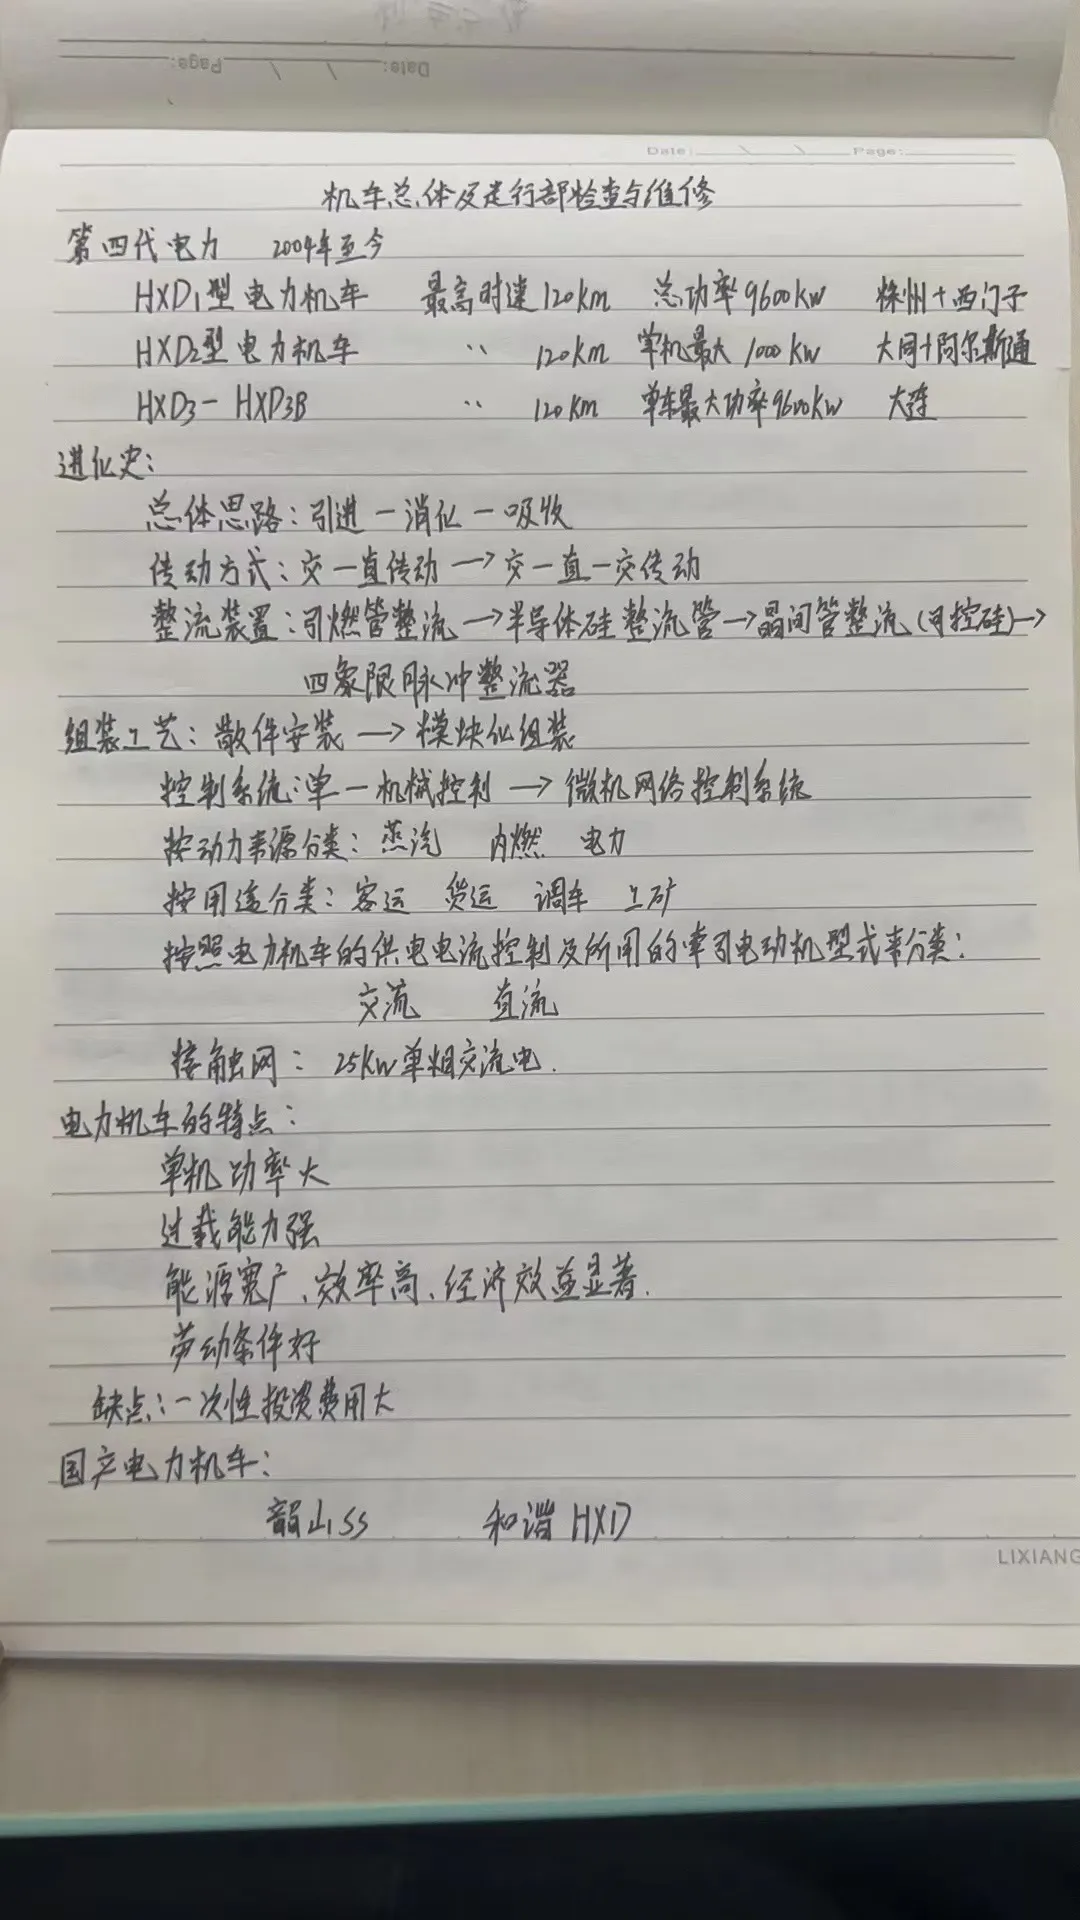 Date: Page:
Date: Page:
机车总体及走行部检查与维修
第四代电力 2004年至今
HXD1型电力机车 最高时速120km 总功率9600kw 株州+西门子
HXD2型电力机车 〃 120km 单机最大1000kw 大同+阿尔斯通
HXD3-HXD3B 〃 120km 单车最大功率9600kw 大连
进化史:
总体思路:引进-消化-吸收
传动方式:交-直传动→交-直-交传动
整流装置:引燃管整流→半导体硅整流管→晶间管整流(可控硅)→
四象限脉冲整流器
组装工艺:散件安装→模块化组装
控制系统:单一机械控制→微机网络控制系统
按动力来源分类:蒸汽 内燃 电力
按用途分类:客运 货运 调车 工矿
按照电力机车的供电电流控制及所用的牵引电动机型式来分类:
交流 直流
接触网: 25kw单相交流电.
电力机车的特点:
单机功率大
过载能力强
能源宽广、效率高、经济效益显著.
劳动条件好
缺点:一次性投资费用大
国产电力机车:
韶山SS 和谐HXD
LIXIANG